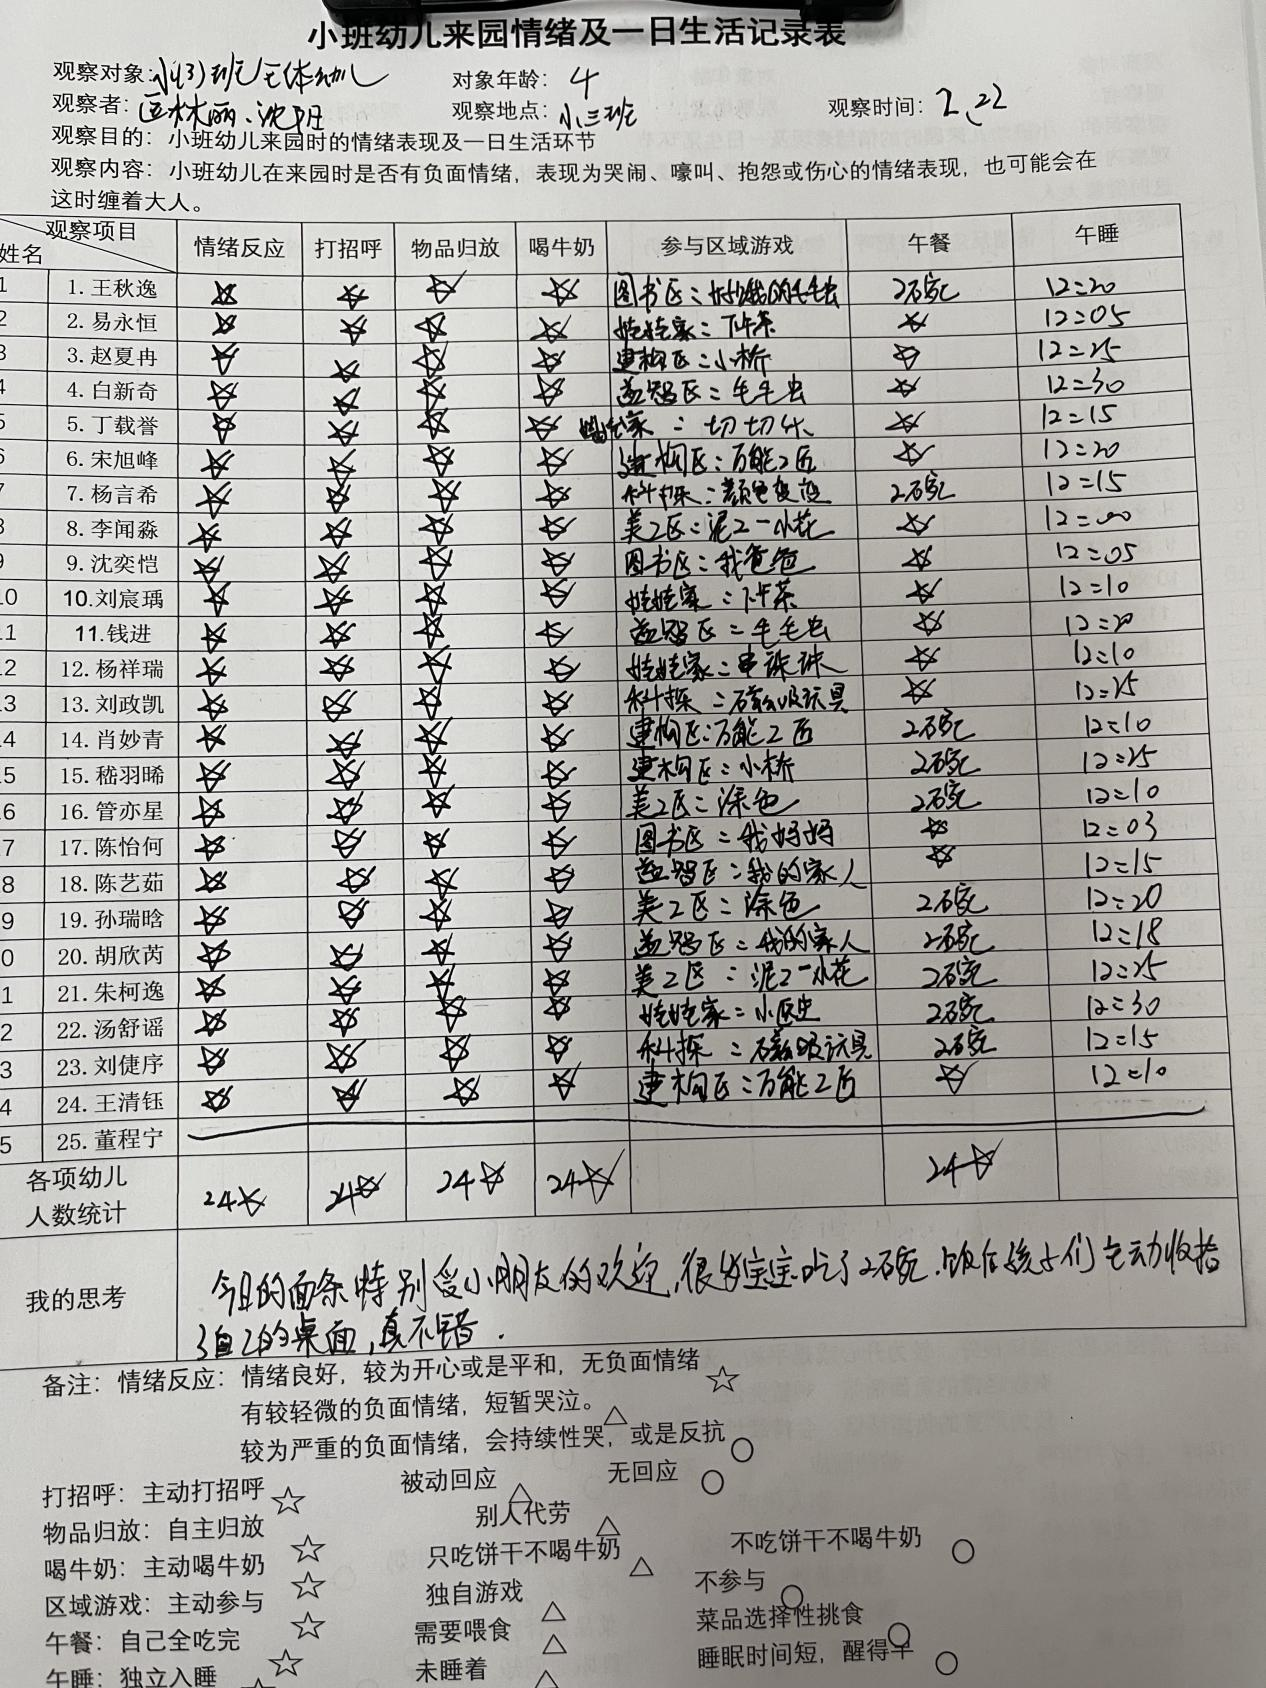 小班幼儿来园情绪及一日生活记录表
观察对象:小(3)班全体幼儿 对象年龄: 4
观察者: 林丽、沈阳 观察地点: 小三班 观察时间: 2、22
观察目的: 小班幼儿来园时的情绪表现及一日生活环节
观察内容: 小班幼儿在来园时是否有负面情绪，表现为哭闹、嚎叫、抱怨或伤心的情绪表现，也可能会在
这时缠着大人。
观察项目
姓名 情绪反应 打招呼 物品归放 喝牛奶 参与区域游戏 午餐 午睡
1 1. 王秋逸 ☆ ☆ ☆ ☆ 图书区: 我的毛毛虫 2碗 12=20
2 2. 易永恒 ☆ ☆ ☆ ☆ 娃娃家: 下午茶 ☆ 12=05
3 3. 赵夏冉 ☆ ☆ ☆ ☆ 建构区: 小桥 ☆ 12=25
4 4. 白新奇 ☆ ☆ ☆ ☆ 益智区: 毛毛虫 ☆ 12=30
5 5. 丁载誉 ☆ ☆ ☆ ☆ 娃娃家: 切切乐 ☆ 12=15
6 6. 宋旭峰 ☆ ☆ ☆ ☆ 建构区: 万能工匠 ☆ 12=20
7 7. 杨言希 ☆ ☆ ☆ ☆ 科探: 颜色变变 2碗 12=15
8 8. 李闻淼 ☆ ☆ ☆ ☆ 美工区: 泥工一小花 ☆ 12=00
9 9. 沈奕恺 ☆ ☆ ☆ ☆ 图书区: 我爸爸 ☆ 12=05
10 10.刘宸瑀 ☆ ☆ ☆ ☆ 娃娃家: 下午茶 ☆ 12=10
11 11.钱进 ☆ ☆ ☆ ☆ 益智区: 毛毛虫 ☆ 12=20
12 12. 杨祥瑞 ☆ ☆ ☆ ☆ 娃娃家: 串珠珠 ☆ 12=10
13 13. 刘政凯 ☆ ☆ ☆ ☆ 科探: 磁吸玩具 ☆ 12=25
14 14. 肖妙青 ☆ ☆ ☆ ☆ 建构区: 万能工匠 2碗 12=10
15 15. 嵇羽晞 ☆ ☆ ☆ ☆ 建构区: 小桥 2碗 12=25
16 16. 管亦星 ☆ ☆ ☆ ☆ 美工区: 涂色 2碗 12=10
17 17. 陈怡何 ☆ ☆ ☆ ☆ 图书区: 我妈妈 ☆ 12=03
18 18. 陈艺茹 ☆ ☆ ☆ ☆ 益智区: 我的家人 ☆ 12=15
19 19. 孙瑞晗 ☆ ☆ ☆ ☆ 美工区: 涂色 2碗 12=20
20 20. 胡欣芮 ☆ ☆ ☆ ☆ 益智区: 我的家人 2碗 12=18
21 21. 朱柯逸 ☆ ☆ ☆ ☆ 美工区: 泥工一小花 2碗 12=25
22 22. 汤舒谣 ☆ ☆ ☆ ☆ 娃娃家: 小医生 2碗 12=30
23 23. 刘倢序 ☆ ☆ ☆ ☆ 科探: 磁吸玩具 2碗 12=15
24 24. 王清钰 ☆ ☆ ☆ ☆ 建构区: 万能工匠 ☆ 12=10
25 25. 董程宁
各项幼儿
人数统计 24☆ 24☆ 24☆ 24☆ 24☆
我的思考 今日的面条特别受小朋友的欢迎,很多宝宝吃了2碗.饭后孩子们主动收拾
了自己的桌面,真不错.
备注: 情绪反应: 情绪良好，较为开心或是平和，无负面情绪 ☆
有较轻微的负面情绪，短暂哭泣。△
较为严重的负面情绪，会持续性哭，或是反抗 ○
打招呼: 主动打招呼 ☆ 被动回应 △ 无回应 ○
物品归放: 自主归放 ☆ 别人代劳 △
喝牛奶: 主动喝牛奶 ☆ 只吃饼干不喝牛奶 △ 不吃饼干不喝牛奶 ○
区域游戏: 主动参与 ☆ 独自游戏 △ 不参与 ○
午餐: 自己全吃完 ☆ 需要喂食 △ 菜品选择性挑食 ○
午睡: 独立入睡 ☆ 未睡着 △ 睡眠时间短，醒得早 ○